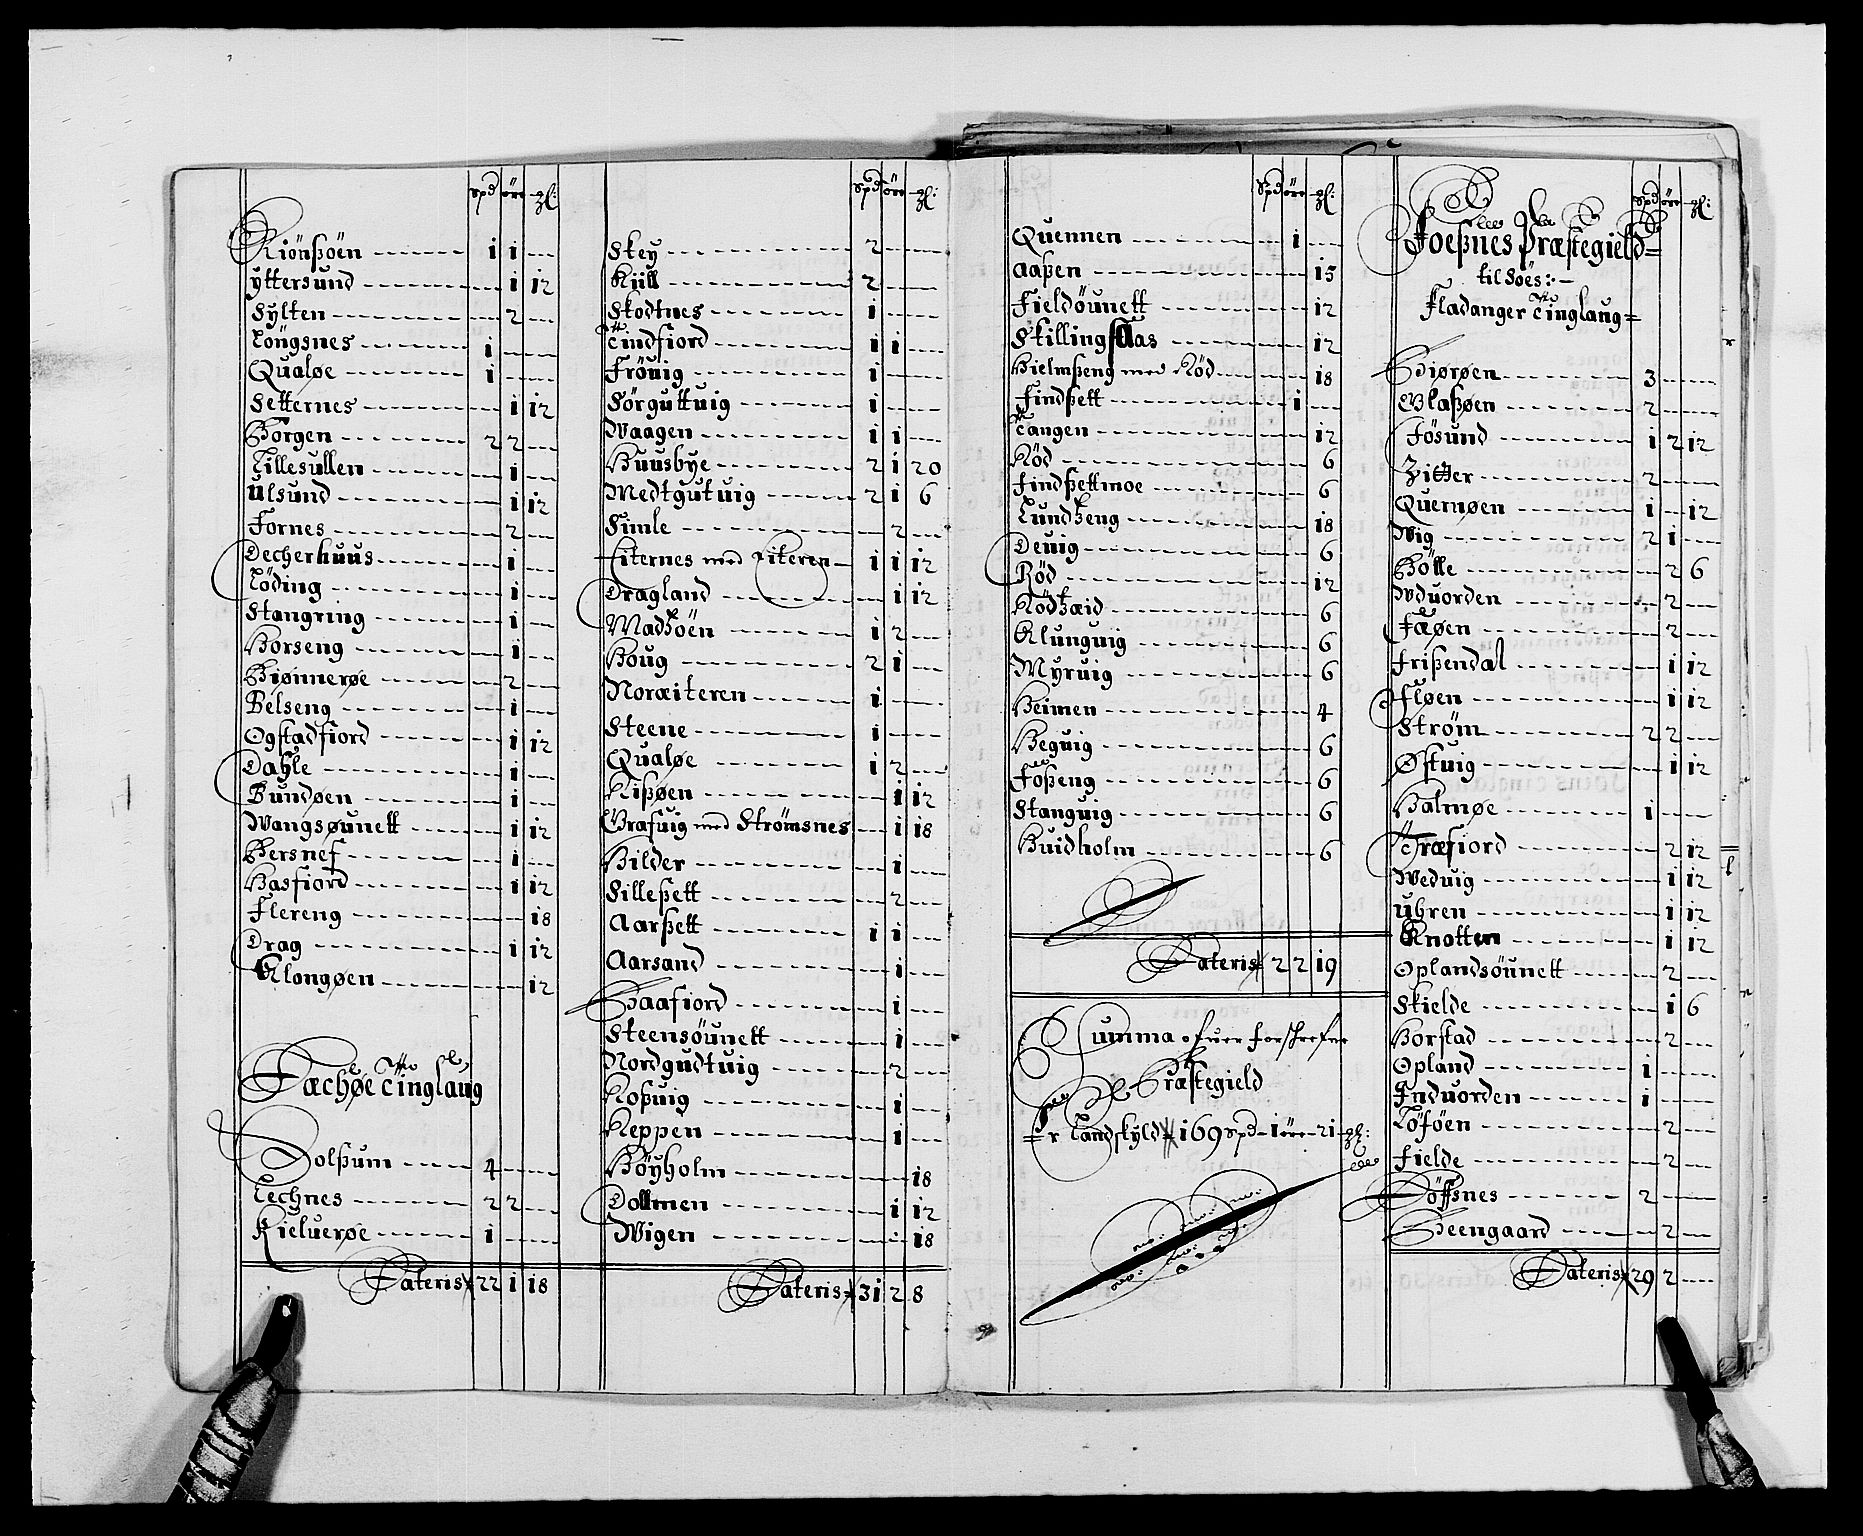 Spd öre gl:
Kiönßöen 1 1
yttersund 1 12
Sylten 2
Löngsnes 1
Qualøe 1
Setternes 1 12
Borgen 2 2
Lillesullen 1
Ulsund 1 12
Fornes 2
Decherhuus 1
Löding 1
Stangring 1
Horseng 1
Biønnerøe 2
Belseng 1
Ogstadfiord 1 12
Dahle 1
Bundøen 1
Wangsøunett 1 12
Bersnef 1
Hasfiord 1 12
Flereng 18
Drag 1 12
Klongøen 12
Tinglaug
Solßum 4
Lechnes 2 2
Kieluerøe 1
Lateris 22 1 18
Spd öre gl:
Skey 2
Kiill 2
Skodtnes 1
Tindfiord 1 1
Fröuig 1
Sörguttuig 1
Waagen 1 1
Huusbye 2 1 20
Medtgutuig 2 1 6
Simle 2
Eiternes med Eiteren 1 1 12
Dragland 1 12
Wadßöen 1 2
Houg 2 1
Noræiteren 1
Steene 1
Qualøe 1 2
Kißøen 1 12
Grafuig med Strömsnes 1 18
Hilder 1
Silleßett 2
Aarßett 1 1
Aarsand 1
Saafiord 1
Steensöunett 1
Nordgudtuig 2
Koßuig 1
Keppen 1
Höyholm 18
Dollmen 1 12
Wigen 18
Lateris 31 2 8
Spd öre gl:
Quennen 1
Aaßen 15
Fieldöunett 12
Skillingsaas 12
Hielmßeng med Röd 18
Findßett 1
Tangen 12
Röd 6
Findßettmoe 6
Lundßeng 18
Deuig 6
Röd 12
Rödßæid 6
Klunguig 6
Myruig 6
Heimen 4
Heguig 6
Foßeng 6
Stanguig 6
Huidholm 6
Lateris 2 2 19
Summa ofuer forschrefne
Præstegield
Er Landskyld 169 spd 1 öre 21 gl:
Spd öre gl:
Foeßnes Præstegield
til Söes:
Fladanger Tinglaug
Biørøen 3
Glaßøen 2
Jösund 1 2 12
Zitter 2
Quernøen 1 12
Wig 2 1
Bölle 2 6
Wduorden 2
Fæøen 2
Frißendal 1 12
Fløen 1 12
Ström 2 2
Østuig 1 12
Halmøe 1
Træfiord 2 12
Weduig 1 12
Uhren 1 12
Knotten 1 12
Oplandsöunett 2
Skielde 1 6
Horstad 2
Opland 1
Induorden 1
Löföen 2
Fielde 2
Döffsnes 2
Seengaard 2
Lateris 29 2